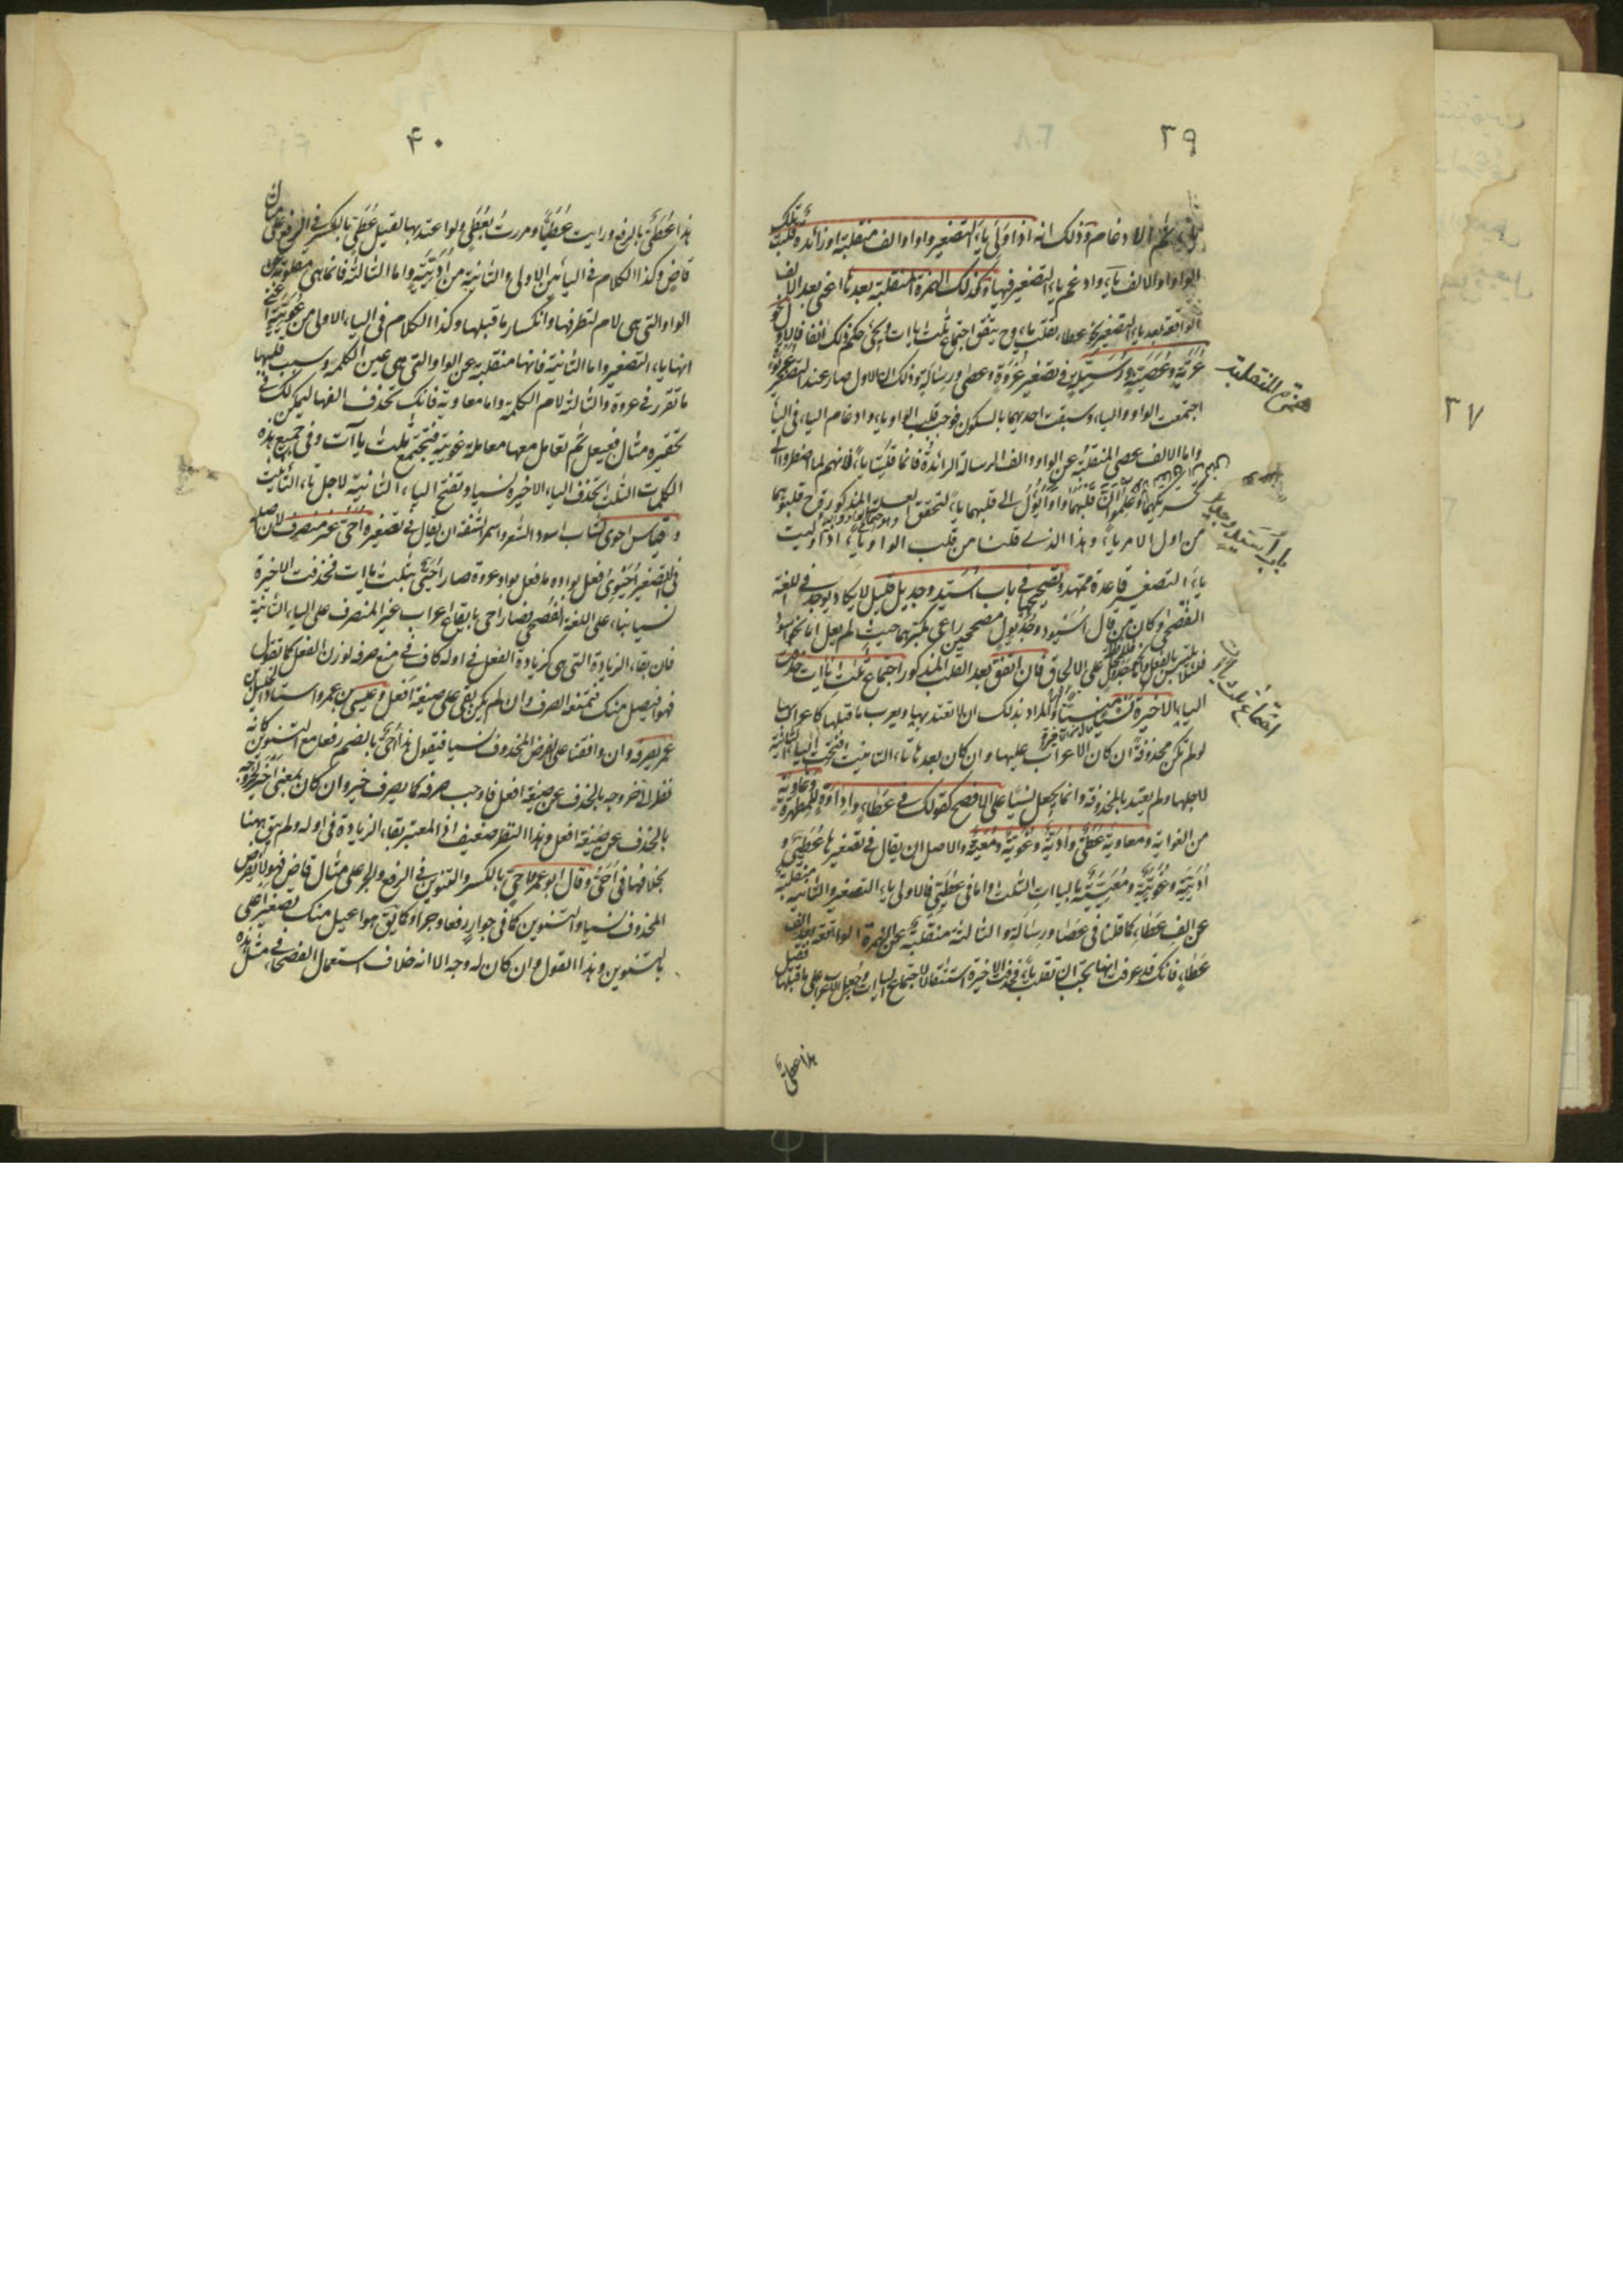 ٣٩
ثم الادغام وذلك انه اذا ولى ياء التصغير واو او الف منقلبة او زائدة قلبت تلك
الواو او الالف ياء وادغم ياء التصغير فيها وكذلك الهمزة المنقلبة بعدها اعنى بعد الالف
الواقعة بعد ياء التصغير نحو عطاء تقلب ياء وح يتفق اجتماع ثلث ياات يجئ حكم ذلك انفا فالاول نحو
عُرَيّة وعُصَيّة ورُسَيّلة في تصغير عُروة وعصى ورسالة وذلك ان الاول صار عند التصغير عُرَيْوَة
اجتمعت الواو والياء وسبقت احديهما بالسكون فوجب قلب الواو ياء وادغام الياء في الياء
واما الالف عصى المنقلبة عن الواو والف الرسالة الزائدة فانما قلبتا ياء لانهم لما اضطروا الى
تحريكهما وعلموا ان قلبهما واوا يؤول الى قلبهما ياء لتحقق العلة المذكورة ح قلبوهما
من اول الامر ياء وهذا الذى قلنا من قلب الواو ياء اذا وليت
ياء التصغير قاعدة ممهدة وتصحيحها في باب اُسَيِّد وجديل قليل لا يكاد يوجد في اللغة
الفصحى وكان من قال اُسَيْود وجُدَيْول مصححين راعى مكبرهما حيث لم يعل اما نحو اسود
فلئلا يلتبس بالفعل واما نحو جدول فللمحافظة على الالحاق فان اتفق بعد القلب المذكور اجتماع ثلث ياات حذفت
الياء الاخيرة نسيا والمراد بذلك ان لا تعتد بها ويعرب ما قبلها كاعرابها
لو لم تكن محذوفة ان كان الاعراب عليها وان كان بعدها تاء التانيث فتحت الياء الثانية
لاجلها ولم يعتد بالمحذوفة وانما يجعل نسيا على الافصح كقولك في عطاء واداوة للمطهرة وغاوية
من الغواية ومعاوية عُطَيٌّ واُدَيّة وغُوَيّة ومُعَيّة والاصل ان يقال في تصغيرها عُطَيِّيٌ و
اُدَيِّيَة وغُوَيِّيَة ومُعَيِّيَة بالياات الثلث اما في عُطَيِّي فالاولى ياء التصغير والثانية منقلبة
عن الف عطاء كما قلنا في عصا ورسالة والثالثة منقلبة عن الهمزة الواقعة بعد الف
عطاء فانك قد عرفت انها يجب ان تقلب ياء فحذفت الاخيرة استثقالا لاجتماع الياات وجعل الاعراب على ما قبلها فقيل
هذا عطىّ
همزة المنقلبة
باب اسيد وجديل
اجتماع ثلث ياات
٣٧
٤٠
هذا عُطَىٌّ بالرفع ورايت عُطَيًّا ومررت بعُطَىٍّ ولو اعتد بها لقيل عُطَىٍّ بالكسر في الرفع على مثال
قاض وكذا الكلام في اليائين الاولى والثانية من اُدَيِّيَة واما الثالثة فانما هى مقلوبة عن
الواو التى هى لام لتطرفها وانكسار ما قبلها وكذا الكلام في الياء الاولى من غُوَيِّيَة اعنى
انها ياء التصغير واما الثانية فانها منقلبة عن الواو التى هى عين الكلمة وسبب قلبها
ما تقرر في عروة والثالثة لام الكلمة واما معاوية فانك تحذف الفها ليمكن لك في
تحقيره مثال فعيعل ثم تعامل معها معاملة غوية فتجتمع ثلث ياآت وفي جميع هذه
الكلمات الثلث تحذف الياء الاخيرة نسيا وتفتح الياء الثانية لاجل تاء التانيث
وقياس احوى لشاب اسود الشعر واسمر الشفة ان يقال في تصغيره اُحَىّ غير منصرف لان اصله
في التصغير اُحَيْوِى فعل بواوه ما فعل بواو عروة صار اُحَيِّى بثلث ياات فحذفت الاخيرة
نسيا بناء على اللغة الفصحى فصار احى بايقاع اعراب غير المنصرف على الياء الثانية
فان بقاء الزيادة التى هى كزيادة الفعل في اوله كاف في منع صرفه لوزن الفعل كما تقول
هو افيصل منك فتمنعه الصرف وان لم يكن بقى على صيغة افعل وعيسى بن عمرو استاد الخليل بن
عمر يصرفه وان وافقنا على فرض المحذوف نسيا فيقول هذا اُحَىٌّ بالضم رفعا مع التنوين كانه
نظر الى خروجه بالحذف عن صيغة افعل فاوجب صرفه كما يصرف خير وان كان بمعنى اخير لخروجه
بالحذف عن صيغة افعل وهذا النظر ضعيف اذ المعتبر بقاء الزيادة في اوله ولم يبق ههنا
بخلافها في اُحَىّ وقال ابو عمرو اُحَىٍّ بالكسر والتنوين في الرفع والجر على مثال قاض فهو لا يفرض
المحذوف نسيا والتنوين كما في جوار رفعا وجرا وكما يق هو اعيل منك بتصغير اعلى
بالتنوين وهذا القول وان كان له وجه الا انه خلاف استعمال الفصحاء في مثل هذه